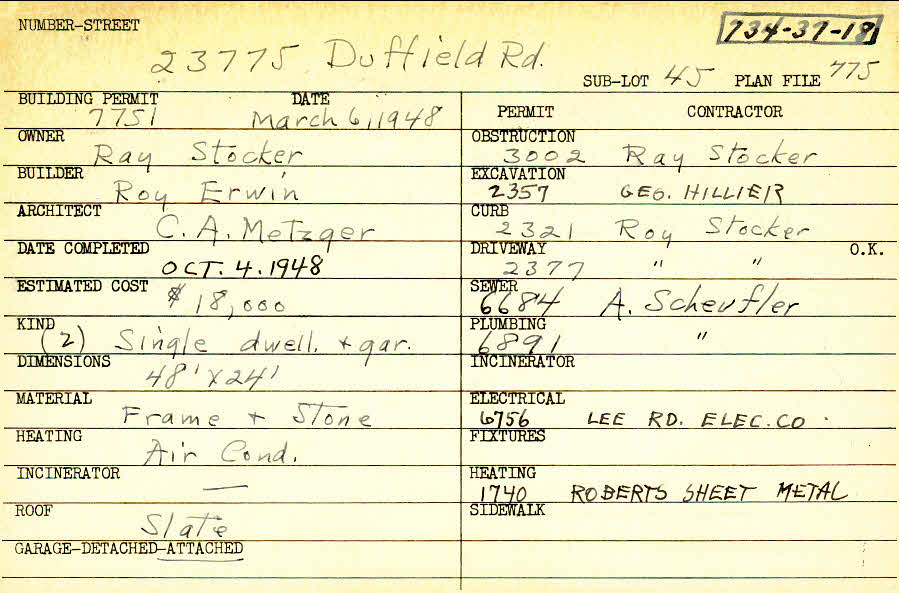 NUMBER-STREET
734-37-18
23775 Duffield Rd.
SUB-LOT 45 PLAN FILE 775
BUILDING PERMIT DATE
7751 March 6, 1948
OWNER
Ray Stocker
BUILDER
Roy Erwin
ARCHITECT
C. A. Metzger
DATE COMPLETED
OCT. 4. 1948
ESTIMATED COST
$ 18,000
KIND
(2) Single dwell. + gar.
DIMENSIONS
48' X 24'
MATERIAL
Frame + Stone
HEATING
Air Cond.
INCINERATOR
—
ROOF
Slate
GARAGE-DETACHED-ATTACHED
PERMIT CONTRACTOR
OBSTRUCTION
3002 Ray Stocker
EXCAVATION
2357 GEO. HILLIER
CURB
2321 Roy Stocker
DRIVEWAY O.K.
2377 " "
SEWER
6684 A. Scheufler
PLUMBING
6891 "
INCINERATOR
ELECTRICAL
6756 LEE RD. ELEC. CO.
FIXTURES
HEATING
1740 ROBERTS SHEET METAL
SIDEWALK